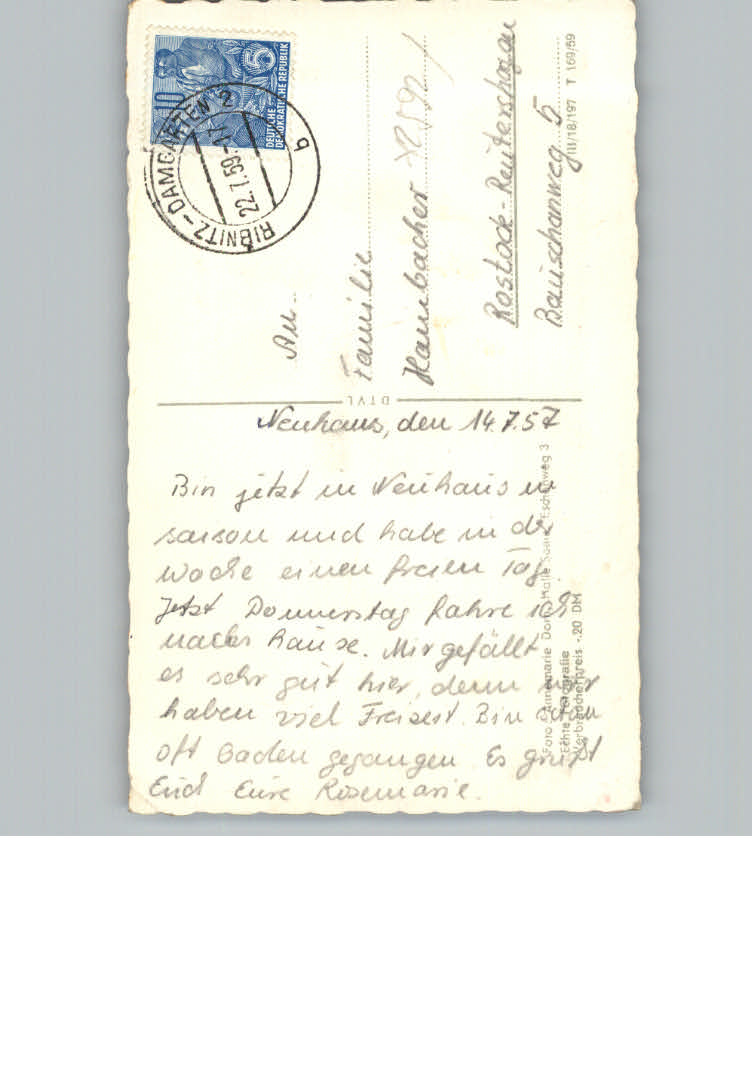 10
5
DEUTSCHE
DEMOKRATISCHE REPUBLIK
RIBNITZ-DAMGARTEN 2
22.7.59.-17
b
An
Familie
Hambacher
Rostock-Reutershagen
Bauschanweg 5
III/18/197 T 169/59
DTVL
Neuhaus, den 14.7.57
Bin jetzt in Neuhaus in
saison und habe in der
woche einen freien Tag.
Jetzt Donnerstag fahre ich
nach hause. Mir gefällt
es sehr gut hier, denn wir
haben viel Freizeit. Bin schon
oft Baden gegangen. Es grüßt
Euch Eure Rosemarie.
Foto: Annemarie Halle Eschenweg 3
Echte Fotografie
Verbraucherpreis -.20 DM